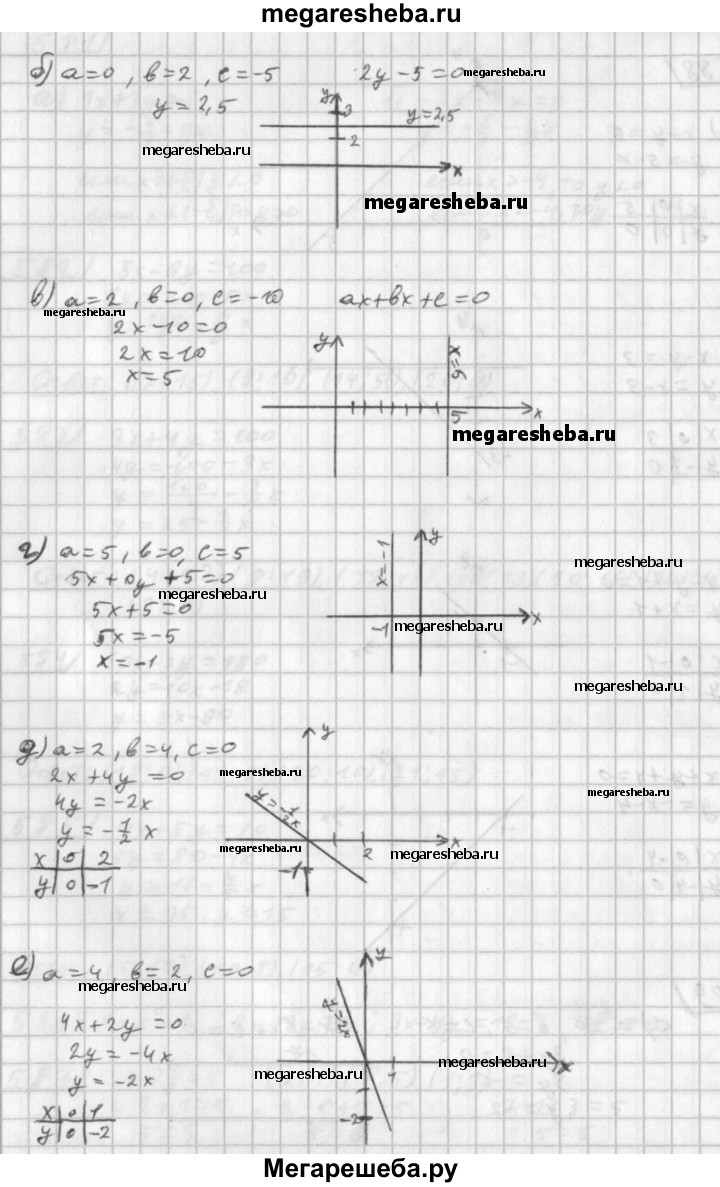 megaresheba.ru
б) a=0, в=2, c=-5 2y-5=0 megaresheba.ru
y=2,5
y
3
y=2,5
2
x
megaresheba.ru
megaresheba.ru
в) a=2, в=0, c=-10 ax+вx+c=0
megaresheba.ru
2x-10=0
2x=10
x=5
y
x=5
5
x
megaresheba.ru
г) a=5, в=0, c=5
5x+0y+5=0
megaresheba.ru
5x+5=0
5x=-5
x=-1
x=-1
y
-1
x
megaresheba.ru
megaresheba.ru
megaresheba.ru
д) a=2, в=4, c=0
2x+4y=0
4y=-2x
y=-1/2 x
x|0|2
y|0|-1
y
y=-1/2x
2
x
-1
megaresheba.ru
megaresheba.ru
megaresheba.ru
megaresheba.ru
е) a=4, в=2, c=0
megaresheba.ru
4x+2y=0
2y=-4x
y=-2x
x|0|1
y|0|-2
y
y=2x
1
x
-2
megaresheba.ru
megaresheba.ru
Мегарешеба.ру